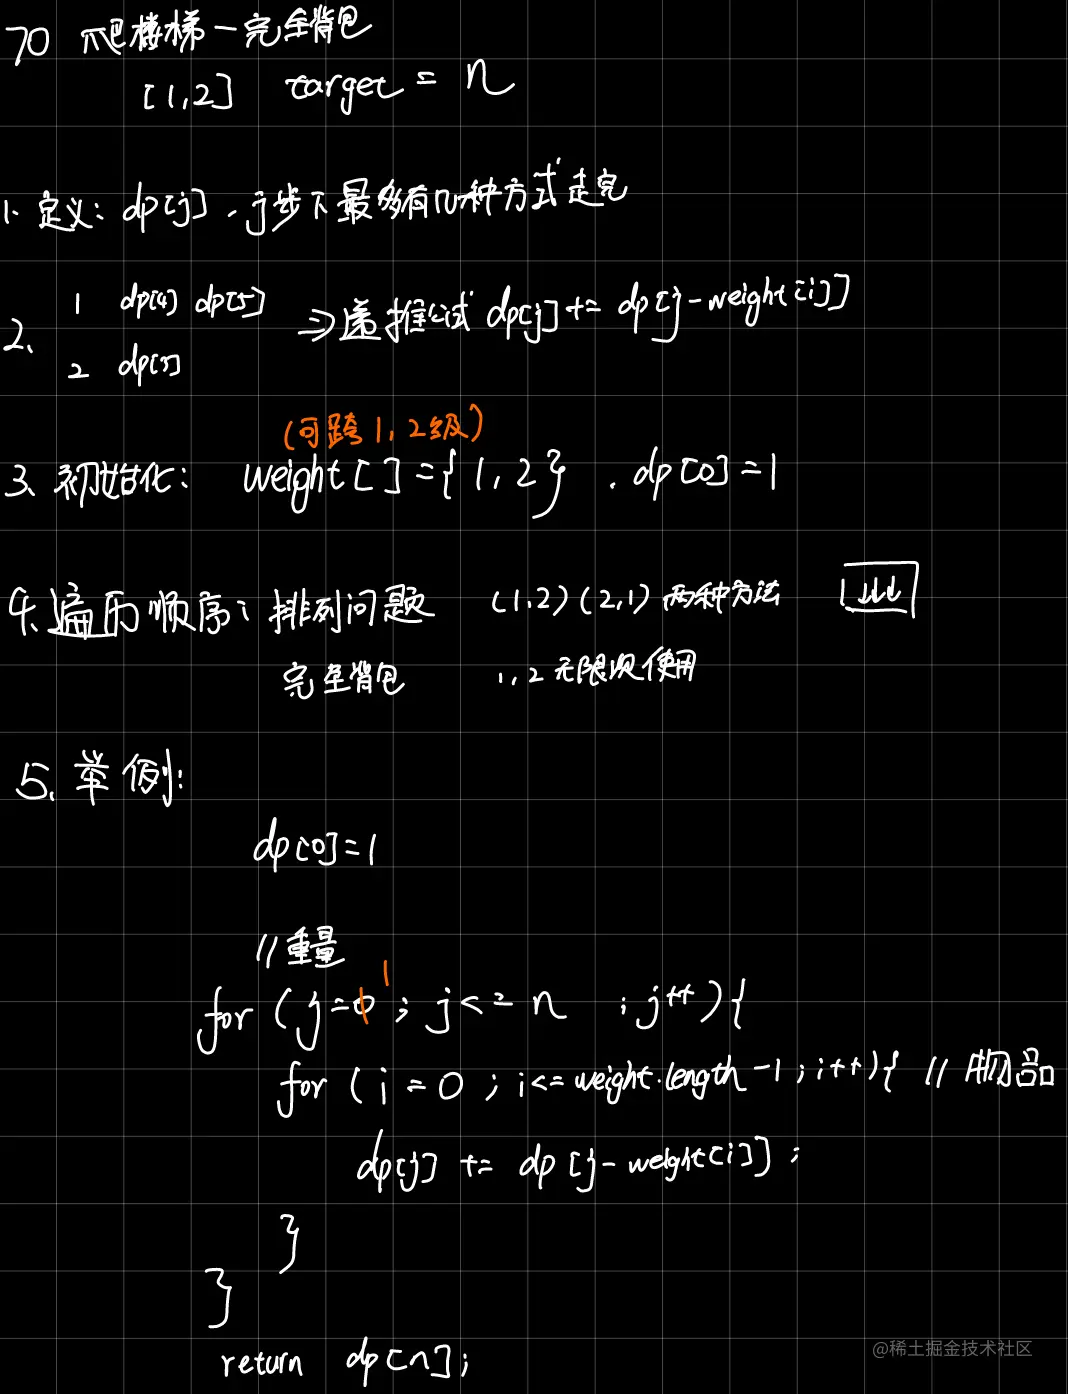 70 爬楼梯—完全背包
[1,2] target = n
1. 定义: dp[j]. j步下最多有几种方式走完
2.
1 dp[4] dp[5]
2 dp[3]
⇒递推公式 dp[j] += dp[j-weight[i]]
(可跨1, 2级)
3. 初始化: weight[ ]={1, 2} . dp[0]=1
4. 遍历顺序: 排列问题 (1,2) (2,1) 两种方法 ↓↓↓
完全背包 1, 2 无限次使用
5. 举例:
dp[0]=1
//重量
1
for (j=0; j<=n ; j++){
for (i=0; i<=weight.length-1; i++){ //物品
dp[j] += dp[j-weight[i]];
}
}
return dp[n];
@稀土掘金技术社区